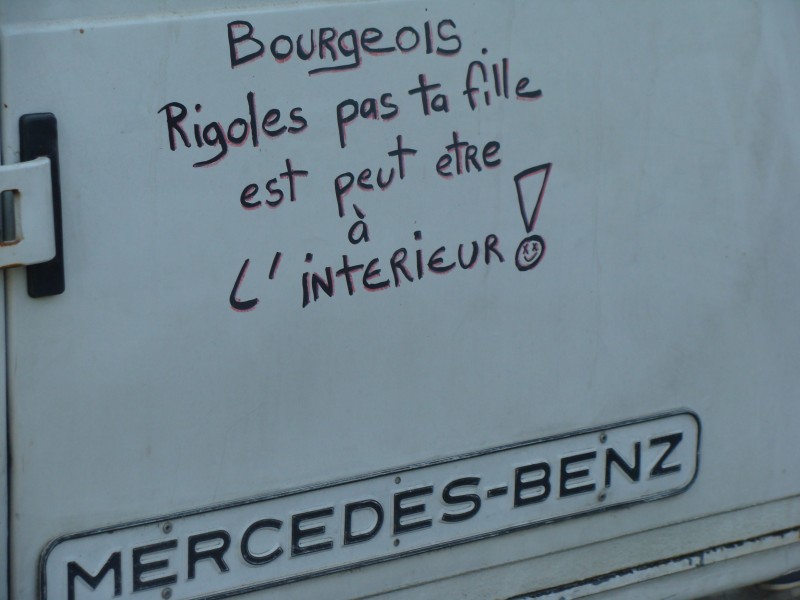 BOURGEOIS.
Rigoles pas ta fille
est peut etre
à
L'INTERIEUR!
MERCEDES-BENZ